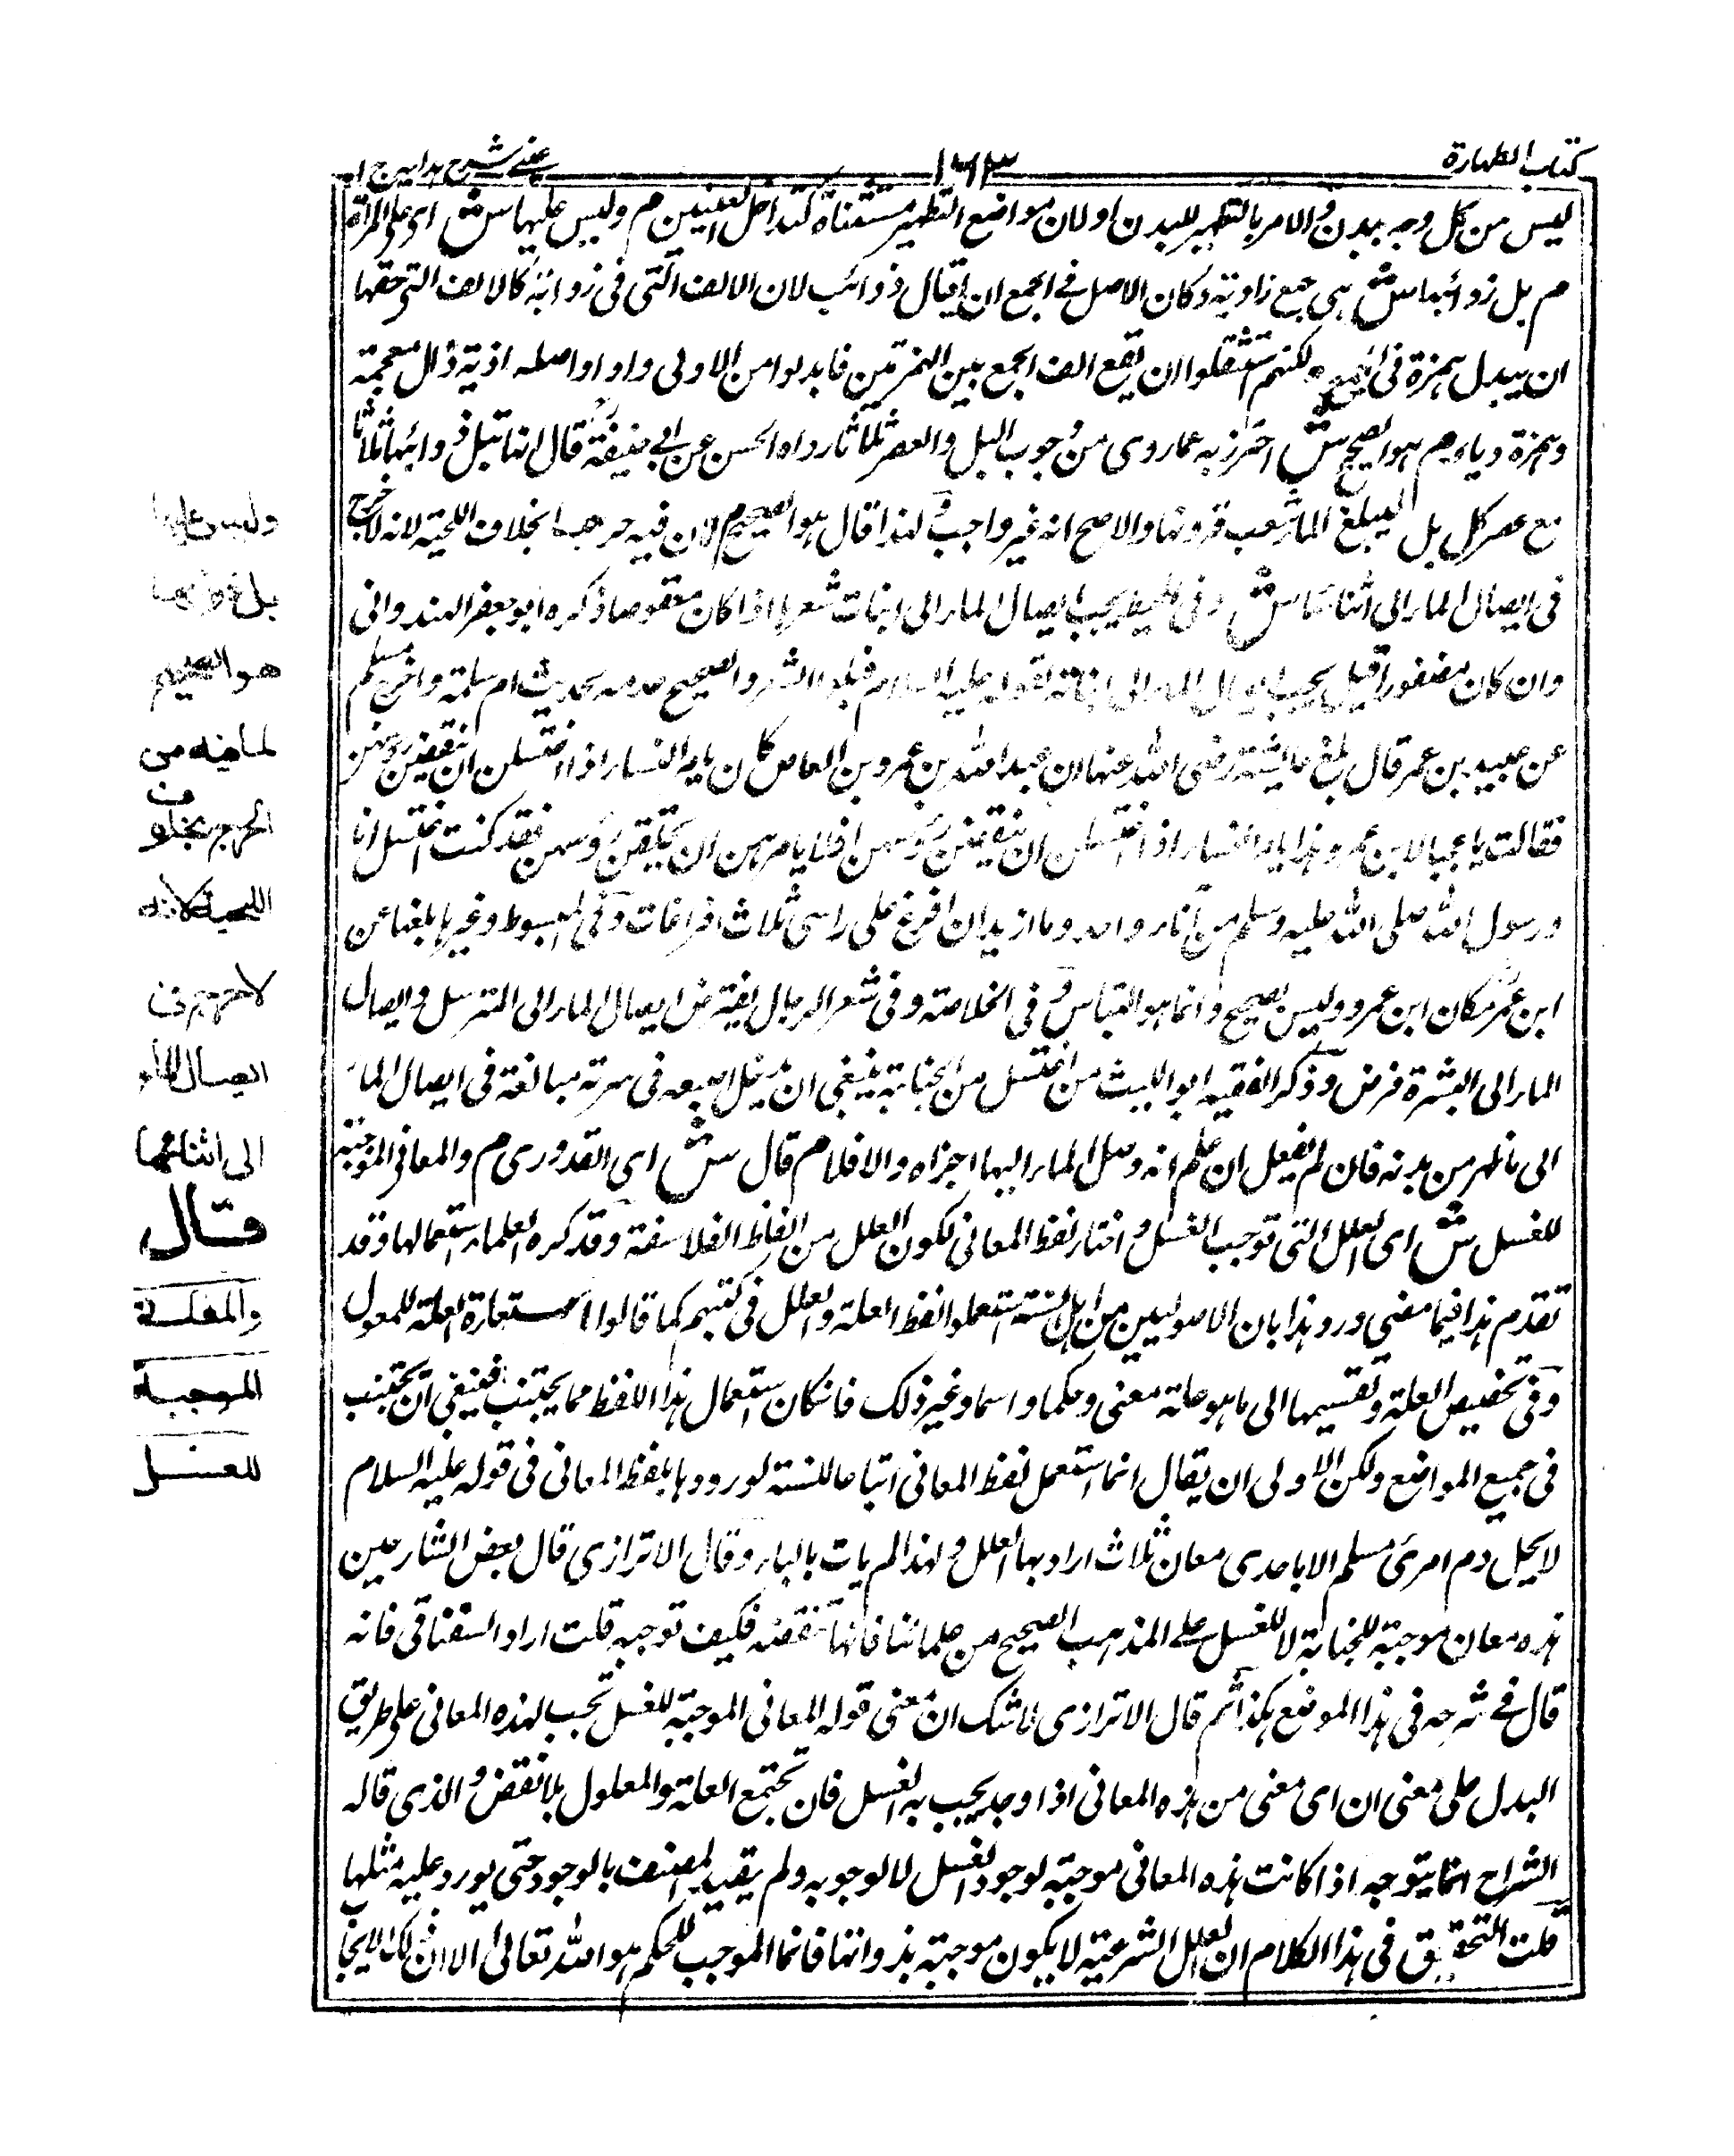 كتاب الطهارة
١٦٣
عينى شرح هدايه ج ا
ليس من كل وجه ببدن والامر بالتطهير للبدن اولان مواضع التطهير مستثناة كتداخل العينين م وليس عليها ش اى على المراة
م بل ذوائبها ش هى جمع ذاوية وكان الاصل فى الجمع ان يقال ذوائب لان الالف التى فى ذوابة كالالف التى حقها
ان يبدل همزة فى الجمع ولكنهم استثقلوا ان يقع الف الجمع بين الهمزتين فابدلوا من الاولى واوا واصله اذية ذال معجمة
وهمزة وياء م هو الصحيح ش احترز به عما روى من وجوب البل والعصر ثلاثا رواه الحسن عن ابى حنيفة قال انها تبل ذوائبها ثلاثا
مع عصر كل بل ليبلغ الماء شعب قرونها والاصح انه غير واجب ولهذا قال هو الصحيح م لان فيه حرجا بخلاف اللحية لانه لا حرج
فى ايصال الماء الى اثنائها ش وفى المحيط يجب ايصال الماء الى اثنات شعرها اذا كان منقوصا ذكره ابو جعفر الهندوانى
وان كان مضفورا قيل يجب ايصال الماء الى اثنائه لقوله عليه السلام فبلوا الشعر والصحيح عدمه بحديث ام سلمة واخرج مسلم
عن عبيد بن عمر قال بلغ عايشة رضى الله عنها ان عبد الله بن عمرو بن العاص كان يامر النساء اذا اغتسلن ان ينقضن رؤسهن
فقالت يا عجبا لابن عمرو هذا يامر النساء اذا اغتسلن ان ينقضن رؤسهن افلا يامرهن ان يحلقن رؤسهن فقد كنت اغتسل انا
ورسول الله صلى الله عليه وسلم من اناء واحد وما ازيد ان افرغ على راسى ثلاث افراغات وفى المبسوط وغيره بلغنا عن
ابن عمر مكان ابن عمرو وليس بصحيح وانما هو التباس وفى الخلاصة وفى شعر الرجال يفترض ايصال الماء الى المترسل وايصال
الماء الى البشرة فرض وذكر الفقيه ابو الليث من اغتسل من الجنابة ينبغى ان يدخل اصبعه فى سرته مبالغة فى ايصال الماء
الى ما ظهر من بدنه فان لم يفعل ان علم انه وصل الماء اليها اجزاه والا فلا م قال ش اى القدورى م والمعانى الموجبة
للغسل ش اى العلل التى توجب الغسل واختار لفظ المعانى لكون العلل من الفاظ الفلاسفة وقد كره العلماء استعمالها وقد
تقدم هذا فيما مضى ورد هذا بان الاصوليين من اهل السنة استعملوا لفظ العلة والعلل فى كتبهم كما قالوا استعارة العلة للمعلول
وفى تخصيص العلة وتقسيمها الى ما هو علة معنى وحكما واسما وغير ذلك فان كان استعمال هذا اللفظ مما يجتنب فينبغى ان يجتنب
فى جميع المواضع ولكن الاولى ان يقال انما استعمل لفظ المعانى اتباعا للسنة لورودها بلفظ المعانى فى قوله عليه السلام
لا يحل دم امرئ مسلم الا باحدى معان ثلاث اراد بها العلل ولهذا لم يات بالباء وقال الاترازى قال بعض الشارحين
هذه معان موجبة للجنابة لا للغسل على المذهب الصحيح من علمائنا فانها تنقضه فكيف توجبه قلت اراد السغناقى فانه
قال فى شرحه فى هذا الموضع هكذا ثم قال الاترازى لا شك ان معنى قوله المعانى الموجبة للغسل تجب لهذه المعانى على طريق
البدل على معنى ان اى معنى من هذه المعانى اذا وجد يجب به الغسل فان تجتمع العلة والمعلول بلا نقض والذى قاله
الشراح انما يتوجه اذا كانت هذه المعانى موجبة لوجود الغسل لا لوجوبه ولم يقيد المصنف بالوجود حتى يورد عليه مثلها
قلت التحقيق فى هذا الكلام ان العلل الشرعية لا يكون موجبة بذواتها فانما الموجب للحكم هو الله تعالى الا ان ذلك الايجا
وليس عليها
بل ذوائبها
هو الصحيح
لما فيه من
الحرج بخلاف
اللحية لانه
لا حرج فى
ايصال الماء
الى اثنائها
قال
والمعانى
الموجبة
للغسل